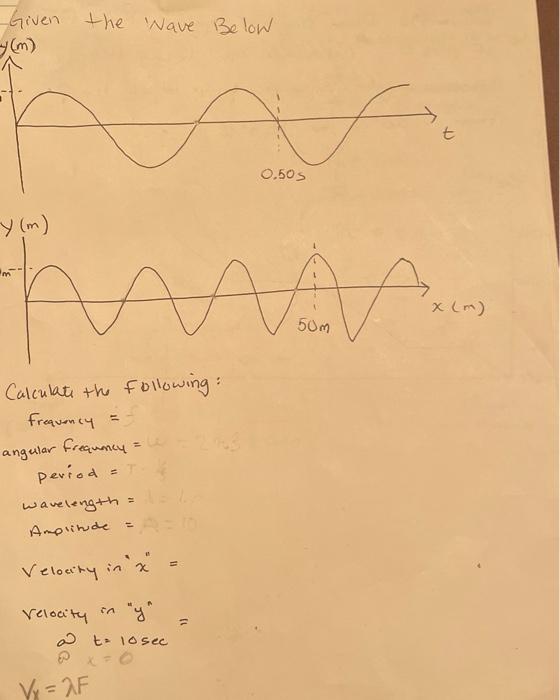 Given the Wave Below
y(m)
t
0.50s
y (m)
m
x (m)
50m
Calculate the following:
frequency =
angular frequency =
period =
wavelength =
Amplitude =
Velocity in "x" =
Velocity in "y" =
@ t= 10 sec
@ x = 0
Vx = λF